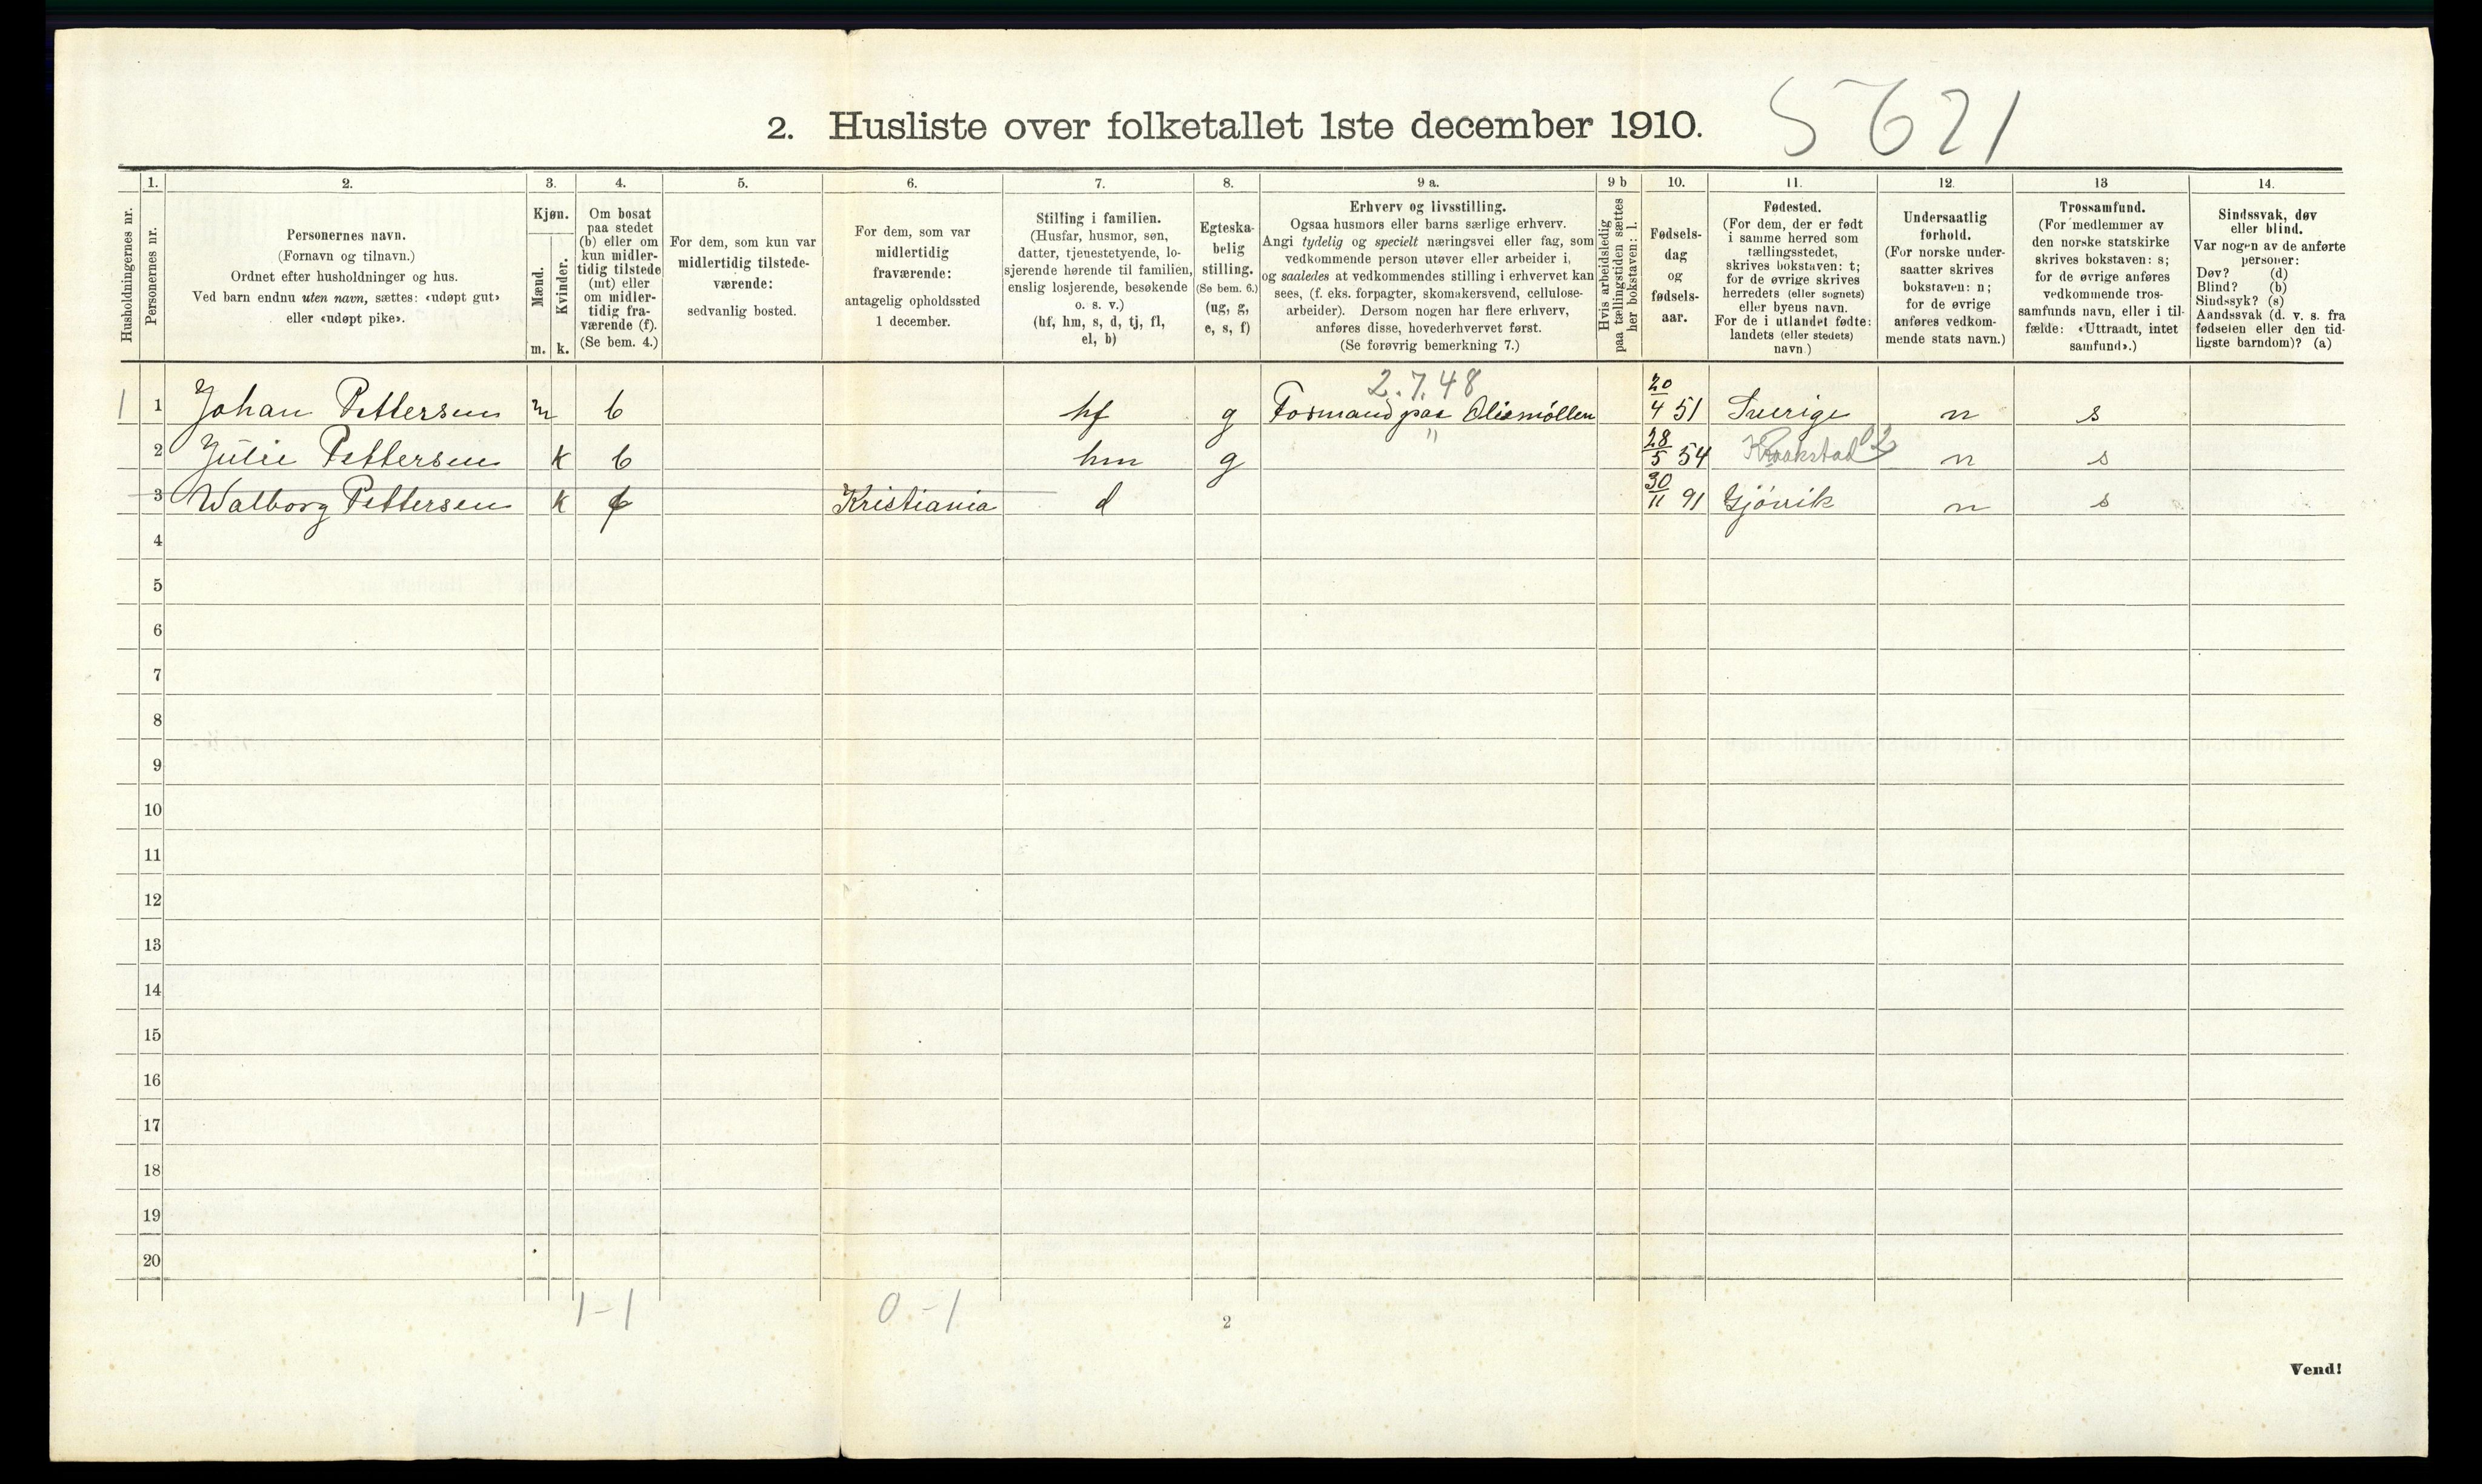 2. Husliste over folketallet 1ste december 1910. 5621
Husholdningernes nr.
1. Personernes nr.
2. Personernes navn.
(Fornavn og tilnavn.)
Ordnet efter husholdninger og hus.
Ved barn endnu uten navn, sættes: «udøpt gut»
eller «udøpt pike».
3. Kjøn.
Mænd. m.
Kvinder. k.
4. Om bosat
paa stedet
(b) eller om
kun midler-
tidig tilstede
(mt) eller
om midler-
tidig fra-
værende (f).
(Se bem. 4.)
5. For dem, som kun var
midlertidig tilstede-
værende:
sedvanlig bosted.
6. For dem, som var
midlertidig
fraværende:
antagelig opholdssted
1 december.
7. Stilling i familien.
(Husfar, husmor, søn,
datter, tjenestetyende, lo-
sjerende hørende til familien,
enslig losjerende, besøkende
o. s. v.)
(hf, hm, s, d, tj, fl,
el, b)
8. Egteska-
belig
stilling.
(Se bem. 6.)
(ug, g,
e, s, f)
9 a. Erhverv og livsstilling.
Ogsaa husmors eller barns særlige erhverv.
Angi tydelig og specielt næringsvei eller fag, som
vedkommende person utøver eller arbeider i,
og saaledes at vedkommendes stilling i erhvervet kan
sees, (f. eks. forpagter, skomakersvend, cellulose-
arbeider). Dersom nogen har flere erhverv,
anføres disse, hovederhvervet først.
(Se forøvrig bemerkning 7.)
9 b Hvis arbeidsledig
paa tællingstiden sættes
her bokstaven: l.
10. Fødsels-
dag
og
fødsels-
aar.
11. Fødested.
(For dem, der er født
i samme herred som
tællingsstedet,
skrives bokstaven: t;
for de øvrige skrives
herredets (eller sognets)
eller byens navn.
For de i utlandet fødte:
landets (eller stedets)
navn.)
12. Undersaatlig
forhold.
(For norske under-
saatter skrives
bokstaven: n;
for de øvrige
anføres vedkom-
mende stats navn.)
13 Trossamfund.
(For medlemmer av
den norske statskirke
skrives bokstaven: s;
for de øvrige anføres
vedkommende tros-
samfunds navn, eller i til-
fælde: «Uttraadt, intet
samfund».)
14. Sindssvak, døv
eller blind.
Var nogen av de anførte
personer:
Døv? (d)
Blind? (b)
Sindssyk? (s)
Aandssvak (d. v. s. fra
fødselen eller den tid-
ligste barndom)? (a)
2.7.48
1 1 Johan Pettersen m b hf g Formand paa Oliemöllen 20/4 51 Sverige n s
2 Julie Pettersen k b hm g " 28/5 54 Kraakstad 02 n s
3 Walborg Pettersen k f Kristiania d 30/11 91 Gjövik n s
4
5
6
7
8
9
10
11
12
13
14
15
16
17
18
19
20
1-1 0-1
2
Vend!